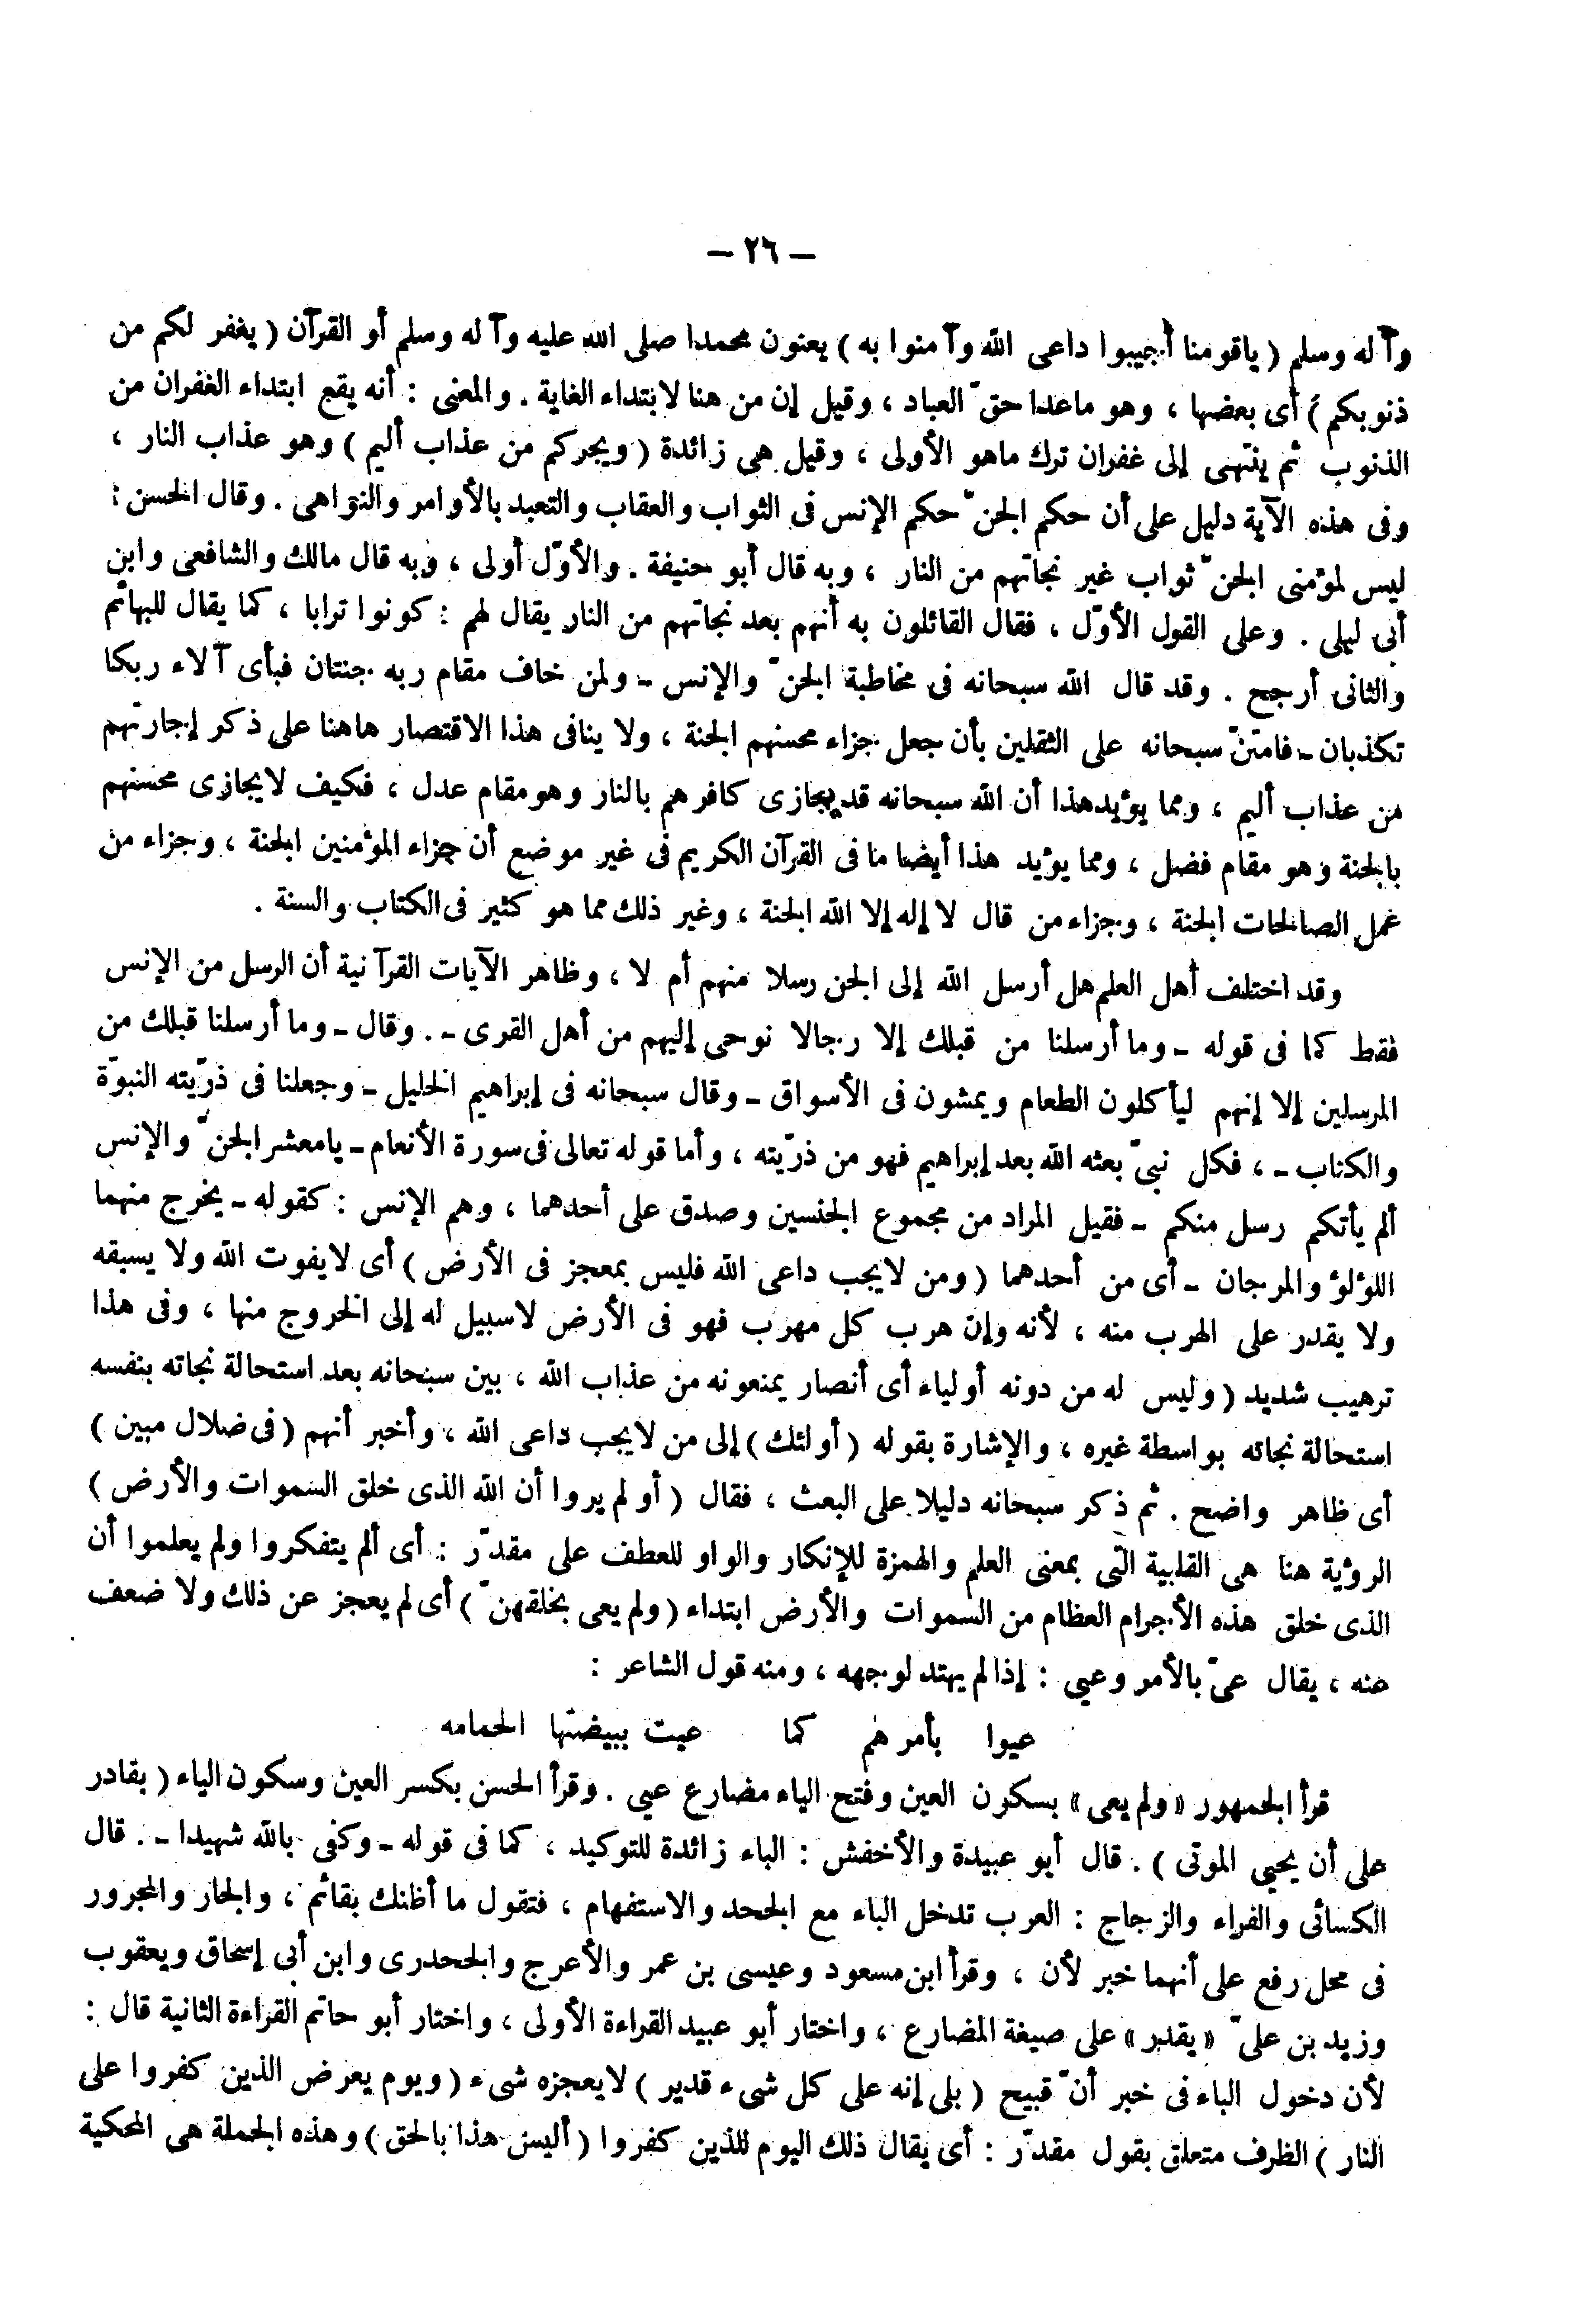 – ٢٦ –
وآله وسلم ( ياقومنا أجيبوا داعى الله وآمنوا به ) يعنون محمدا صلى الله عليه وآله وسلم أو القرآن ( يغفر لكم من
ذنوبكم ) أى بعضها ، وهو ماعدا حقّ العباد ، وقيل إن من هنا لابتداء الغاية . والمعنى : أنه يقع ابتداء الغفران من
الذنوب ثم ينتهى إلى غفران ترك ماهو الأولى ، وقيل هى زائدة ( ويجركم من عذاب أليم ) وهو عذاب النار ،
وفى هذه الآية دليل على أن حكم الجنّ حكم الإنس فى الثواب والعقاب والتعبد بالأوامر والنواهى . وقال الحسن :
ليس لمؤمنى الجنّ ثواب غير نجاتهم من النار ، وبه قال أبو حنيفة . والأوّل أولى ، وبه قال مالك والشافعى وابن
أبى ليلى . وعلى القول الأوّل ، فقال القائلون به أنهم بعد نجاتهم من النار يقال لهم : كونوا ترابا ، كما يقال للبهائم
والثانى أرجح . وقد قال الله سبحانه فى مخاطبة الجنّ والإنس – ولمن خاف مقام ربه جنتان فبأى آلاء ربكما
تكذبان – فامتنّ سبحانه على الثقلين بأن جعل جزاء محسنهم الجنة ، ولا ينافى هذا الاقتصار هاهنا على ذكر إجارتهم
من عذاب أليم ، ومما يؤيد هذا أن الله سبحانه قد يجازى كافرهم بالنار وهو مقام عدل ، فكيف لايجازى محسنهم
بالجنة وهو مقام فضل ، ومما يؤيد هذا أيضا ما فى القرآن الكريم فى غير موضع أن جزاء المؤمنين الجنة ، وجزاء من
عمل الصالحات الجنة ، وجزاء من قال لا إله إلا الله الجنة ، وغير ذلك مما هو كثير فى الكتاب والسنة .
وقد اختلف أهل العلم هل أرسل الله إلى الجن رسلا منهم أم لا ، وظاهر الآيات القرآنية أن الرسل من الإنس
فقط كما فى قوله – وما أرسلنا من قبلك إلا رجالا نوحى إليهم من أهل القرى – . وقال – وما أرسلنا قبلك من
المرسلين إلا إنهم ليأكلون الطعام ويمشون فى الأسواق – وقال سبحانه فى إبراهيم الخليل – وجعلنا فى ذرّيته النبوّة
والكتاب – ، فكل نبىّ بعثه الله بعد إبراهيم فهو من ذرّيته ، وأما قوله تعالى فى سورة الأنعام – يامعشر الجنّ والإنس
ألم يأتكم رسل منكم – فقيل المراد من مجموع الجنسين وصدق على أحدهما ، وهم الإنس : كقوله – يخرج منهما
اللؤلؤ والمرجان – أى من أحدهما ( ومن لايجب داعى الله فليس بمعجز فى الأرض ) أى لايفوت الله ولا يسبقه
ولا يقدر على الهرب منه ، لأنه وإن هرب كل مهرب فهو فى الأرض لاسبيل له إلى الخروج منها ، وفى هذا
ترهيب شديد ( وليس له من دونه أولياء أى أنصار يمنعونه من عذاب الله ، بين سبحانه بعد استحالة نجاته بنفسه
استحالة نجاته بواسطة غيره ، والإشارة بقوله ( أولئك ) إلى من لايجب داعى الله ، وأخبر أنهم ( فى ضلال مبين )
أى ظاهر واضح . ثم ذكر سبحانه دليلا على البعث ، فقال ( أو لم يروا أن الله الذى خلق السموات والأرض )
الرؤية هنا هى القلبية التى بمعنى العلم والهمزة للإنكار والواو للعطف على مقدّر : أى ألم يتفكروا ولم يعلموا أن
الذى خلق هذه الأجرام العظام من السموات والأرض ابتداء ( ولم يعى بخلقهنّ ) أى لم يعجز عن ذلك ولا ضعف
عنه ، يقال عىّ بالأمر وعيى : إذا لم يهتد لوجهه ، ومنه قول الشاعر :
عيوا بأمرهم كما عيت ببيضتها الحمامه
قرأ الجمهور « ولم يعى » بسكون العين وفتح الياء مضارع عيى . وقرأ الحسن بكسر العين وسكون الياء ( بقادر
على أن يحيى الموتى ) . قال أبو عبيدة والأخفش : الباء زائدة للتوكيد ، كما فى قوله – وكفى بالله شهيدا – . قال
الكسائى والفراء والزجاج : العرب تدخل الباء مع الجحد والاستفهام ، فتقول ما أظنك بقائم ، والجار والمجرور
فى محل رفع على أنهما خبر لأن ، وقرأ ابن مسعود وعيسى بن عمر والأعرج والجحدرى وابن أبى إسحاق ويعقوب
وزيد بن علىّ « يقدر » على صيغة المضارع ، واختار أبو عبيد القراءة الأولى ، واختار أبو حاتم القراءة الثانية قال :
لأن دخول الباء فى خبر أنّ قبيح ( بلى إنه على كل شىء قدير ) لايعجزه شىء ( ويوم يعرض الذين كفروا على
النار ) الظرف متعلق بقول مقدّر : أى يقال ذلك اليوم للذين كفروا ( أليس هذا بالحق ) وهذه الجملة هى المحكية